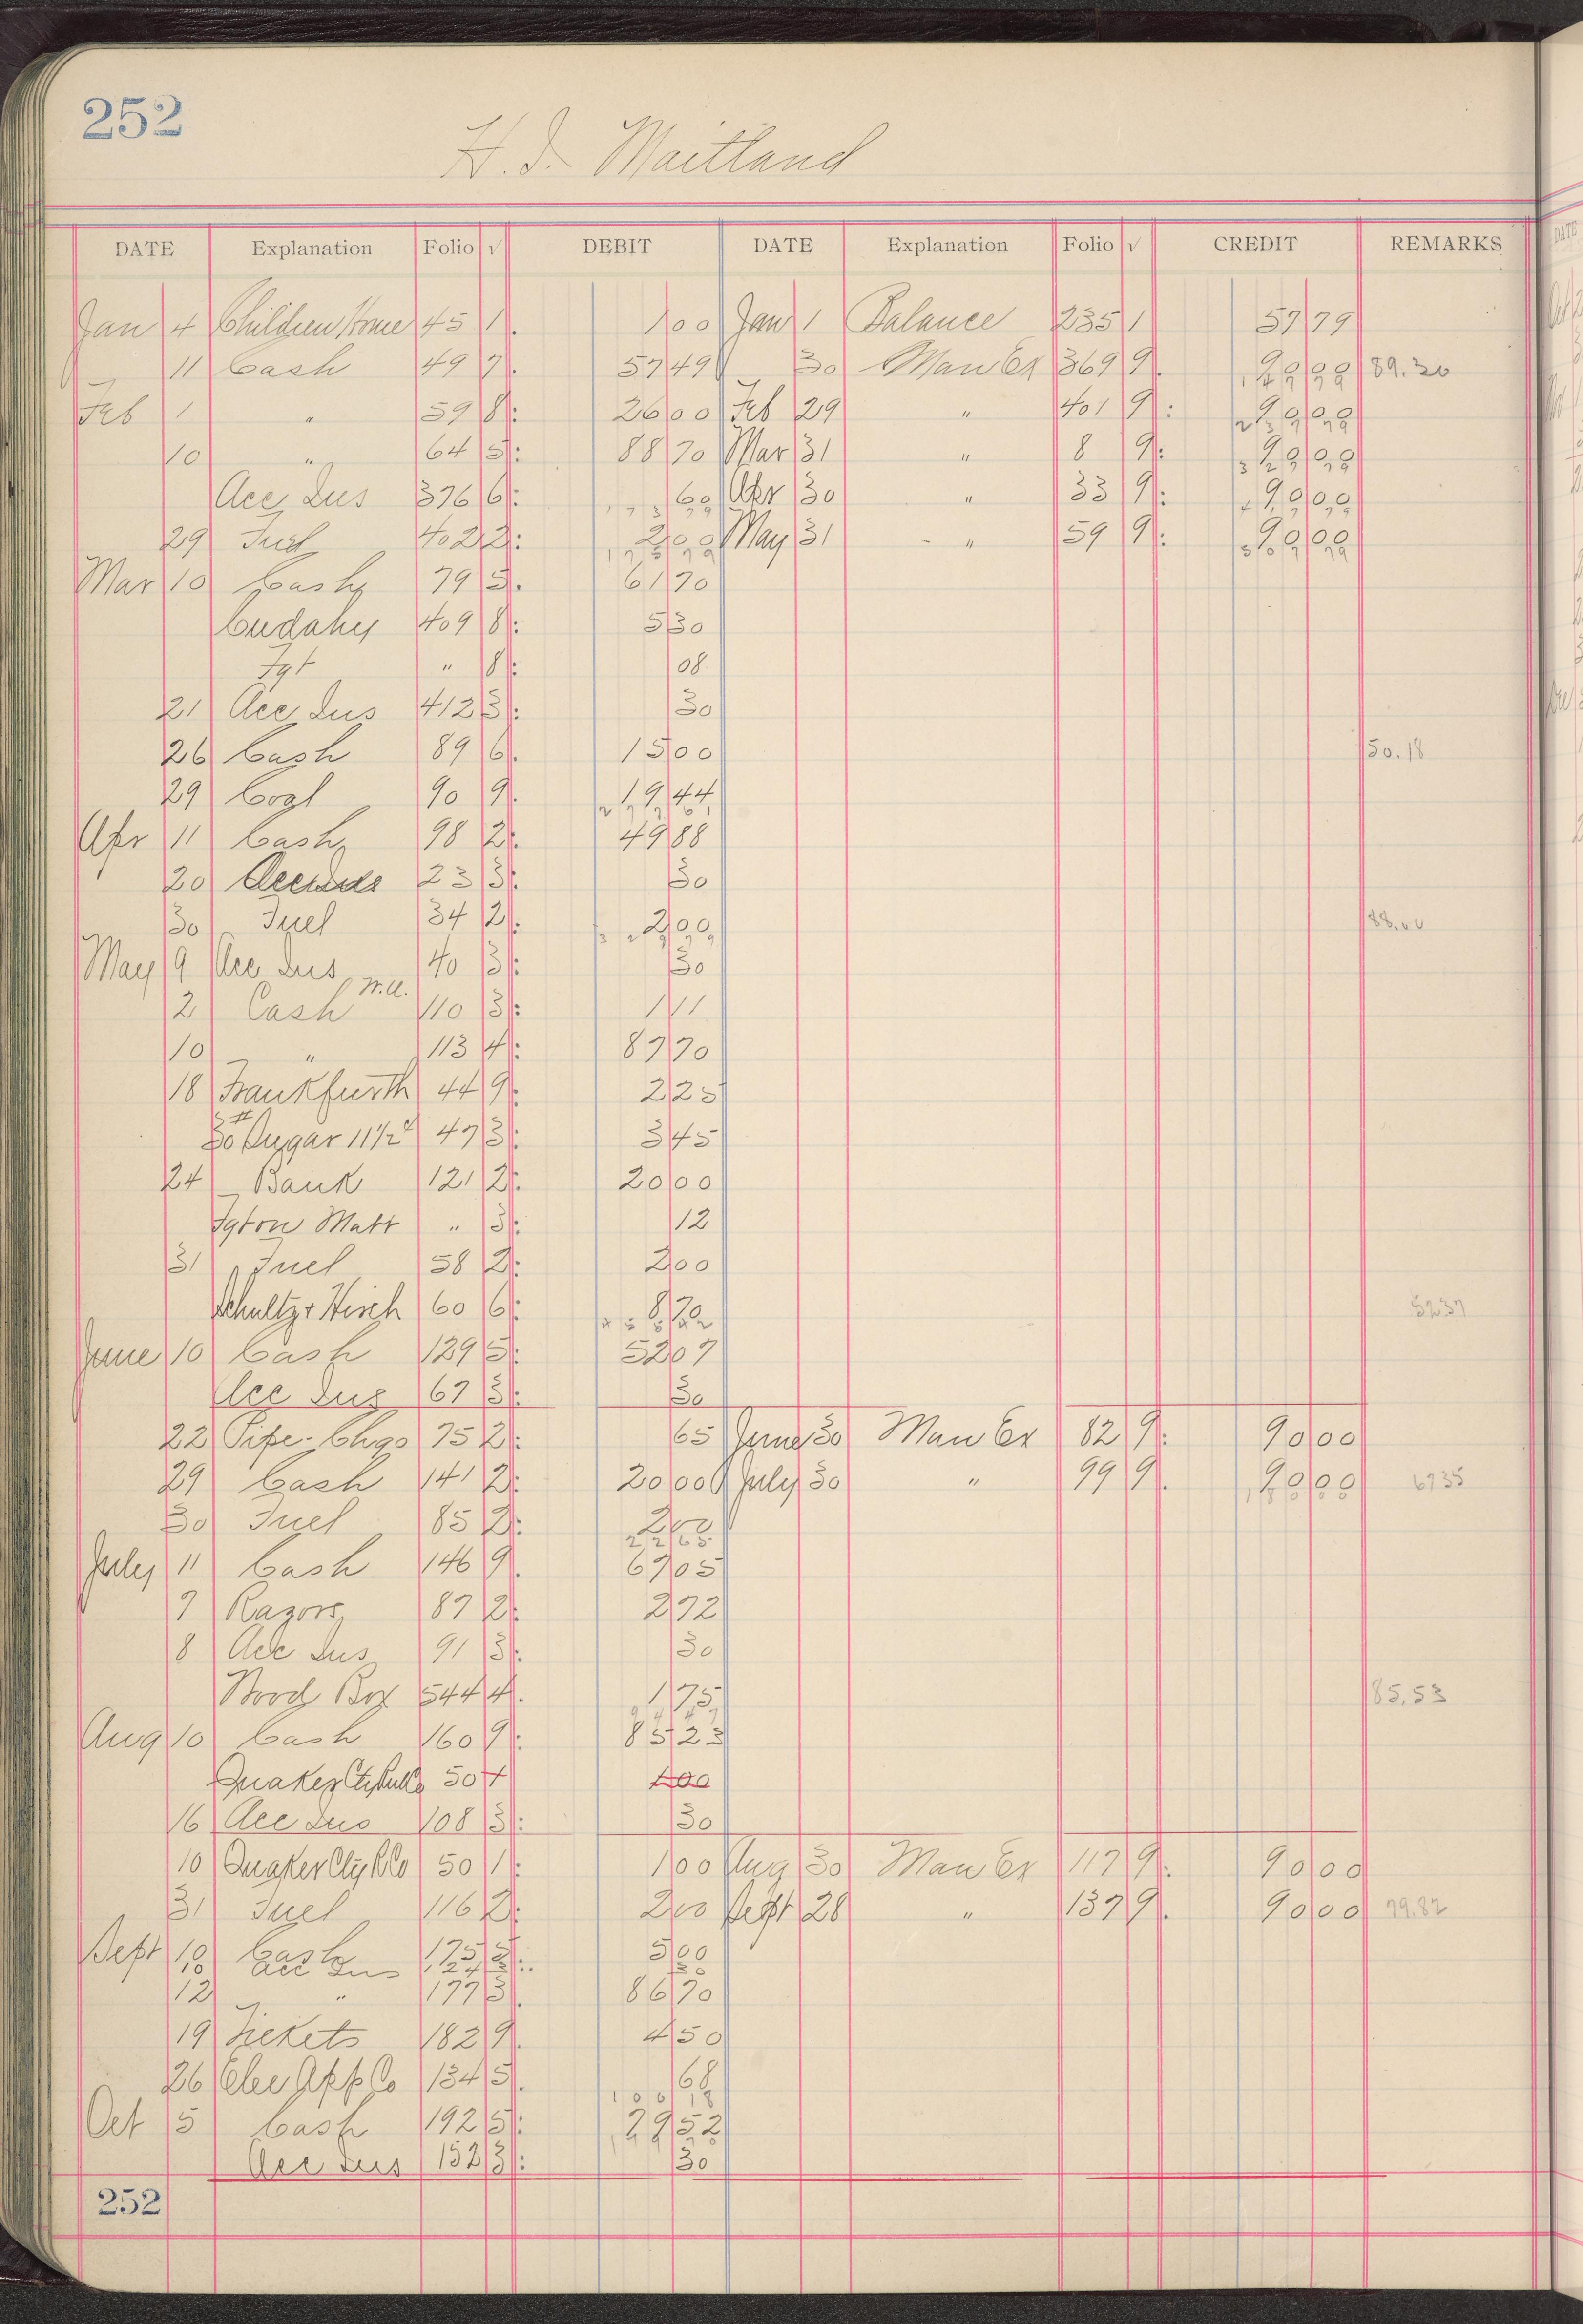 252
H. I. Maitland
DATE Explanation Folio √ DEBIT DATE Explanation Folio √ CREDIT REMARKS
Jan 4 Children Home 45 1 1 00 Jan 1 Balance 235 1 57 79
11 Cash 49 7 57 49 30 Man Ex 369 9 90 00 89.30
Feb 1 " 59 8 26 00 Feb 29 " 401 9 90 00
10 " 64 5 88 70 Mar 31 " 8 9 90 00
Acc Ins 376 6 60 Apr 30 " 33 9 90 00
29 Fuel 402 2 2 00 May 31 " 59 9 90 00
Mar 10 Cash 79 5 61 70
Cudahy 409 8 5 30
Fgt " 8 08
21 Acc Ins 412 3 30
26 Cash 89 6 15 00 50.18
29 Coal 90 9 19 44
Apr 11 Cash 98 2 49 88
20 Acc Ins 23 3 30
30 Fuel 34 2 2 00 88.00
May 9 Acc Ins 40 3 30
2 Cash 110 3 1 11
10 " 113 4 87 70
18 Frankfurth 44 9 2 25
30# Sugar 11½¢ 47 3 3 45
24 Bank 121 2 20 00
Fgt on Matt " 3 12
31 Fuel 58 2 2 00
Schultz + Hirsch 60 6 8 70 52.37
June 10 Cash 129 5 52 07
Acc Ins 67 3 30
22 Pipe - Chgo 75 2 65 June 30 Man Ex 82 9 90 00
29 Cash 141 2 20 00 July 30 " 99 9 90 00 67 35
30 Fuel 85 2 2 00
22 65
July 11 Cash 146 9 67 05
7 Razors 87 2 2 72
8 Acc Ins 91 3 30
Wood Box 544 4 1 75 85.53
Aug 10 Cash 160 9 85 23
Quaker Cty 50 1 00
16 Acc Ins 108 3 30
10 Quaker Cty R Co 50 1 1 00 Aug 30 Man Ex 117 9 90 00
31 Fuel 116 2 2 00 Sept 28 " 137 9 90 00 79.82
Sept 10 Cash 175 5 5 00
10 Acc Ins 124 3 30
12 " 177 3 86 70
19 Tickets 182 9 4 50
26 Elec App Co 134 5 68
100 18
Oct 5 Cash 192 5 79 52
Acc Ins 152 3 30
252